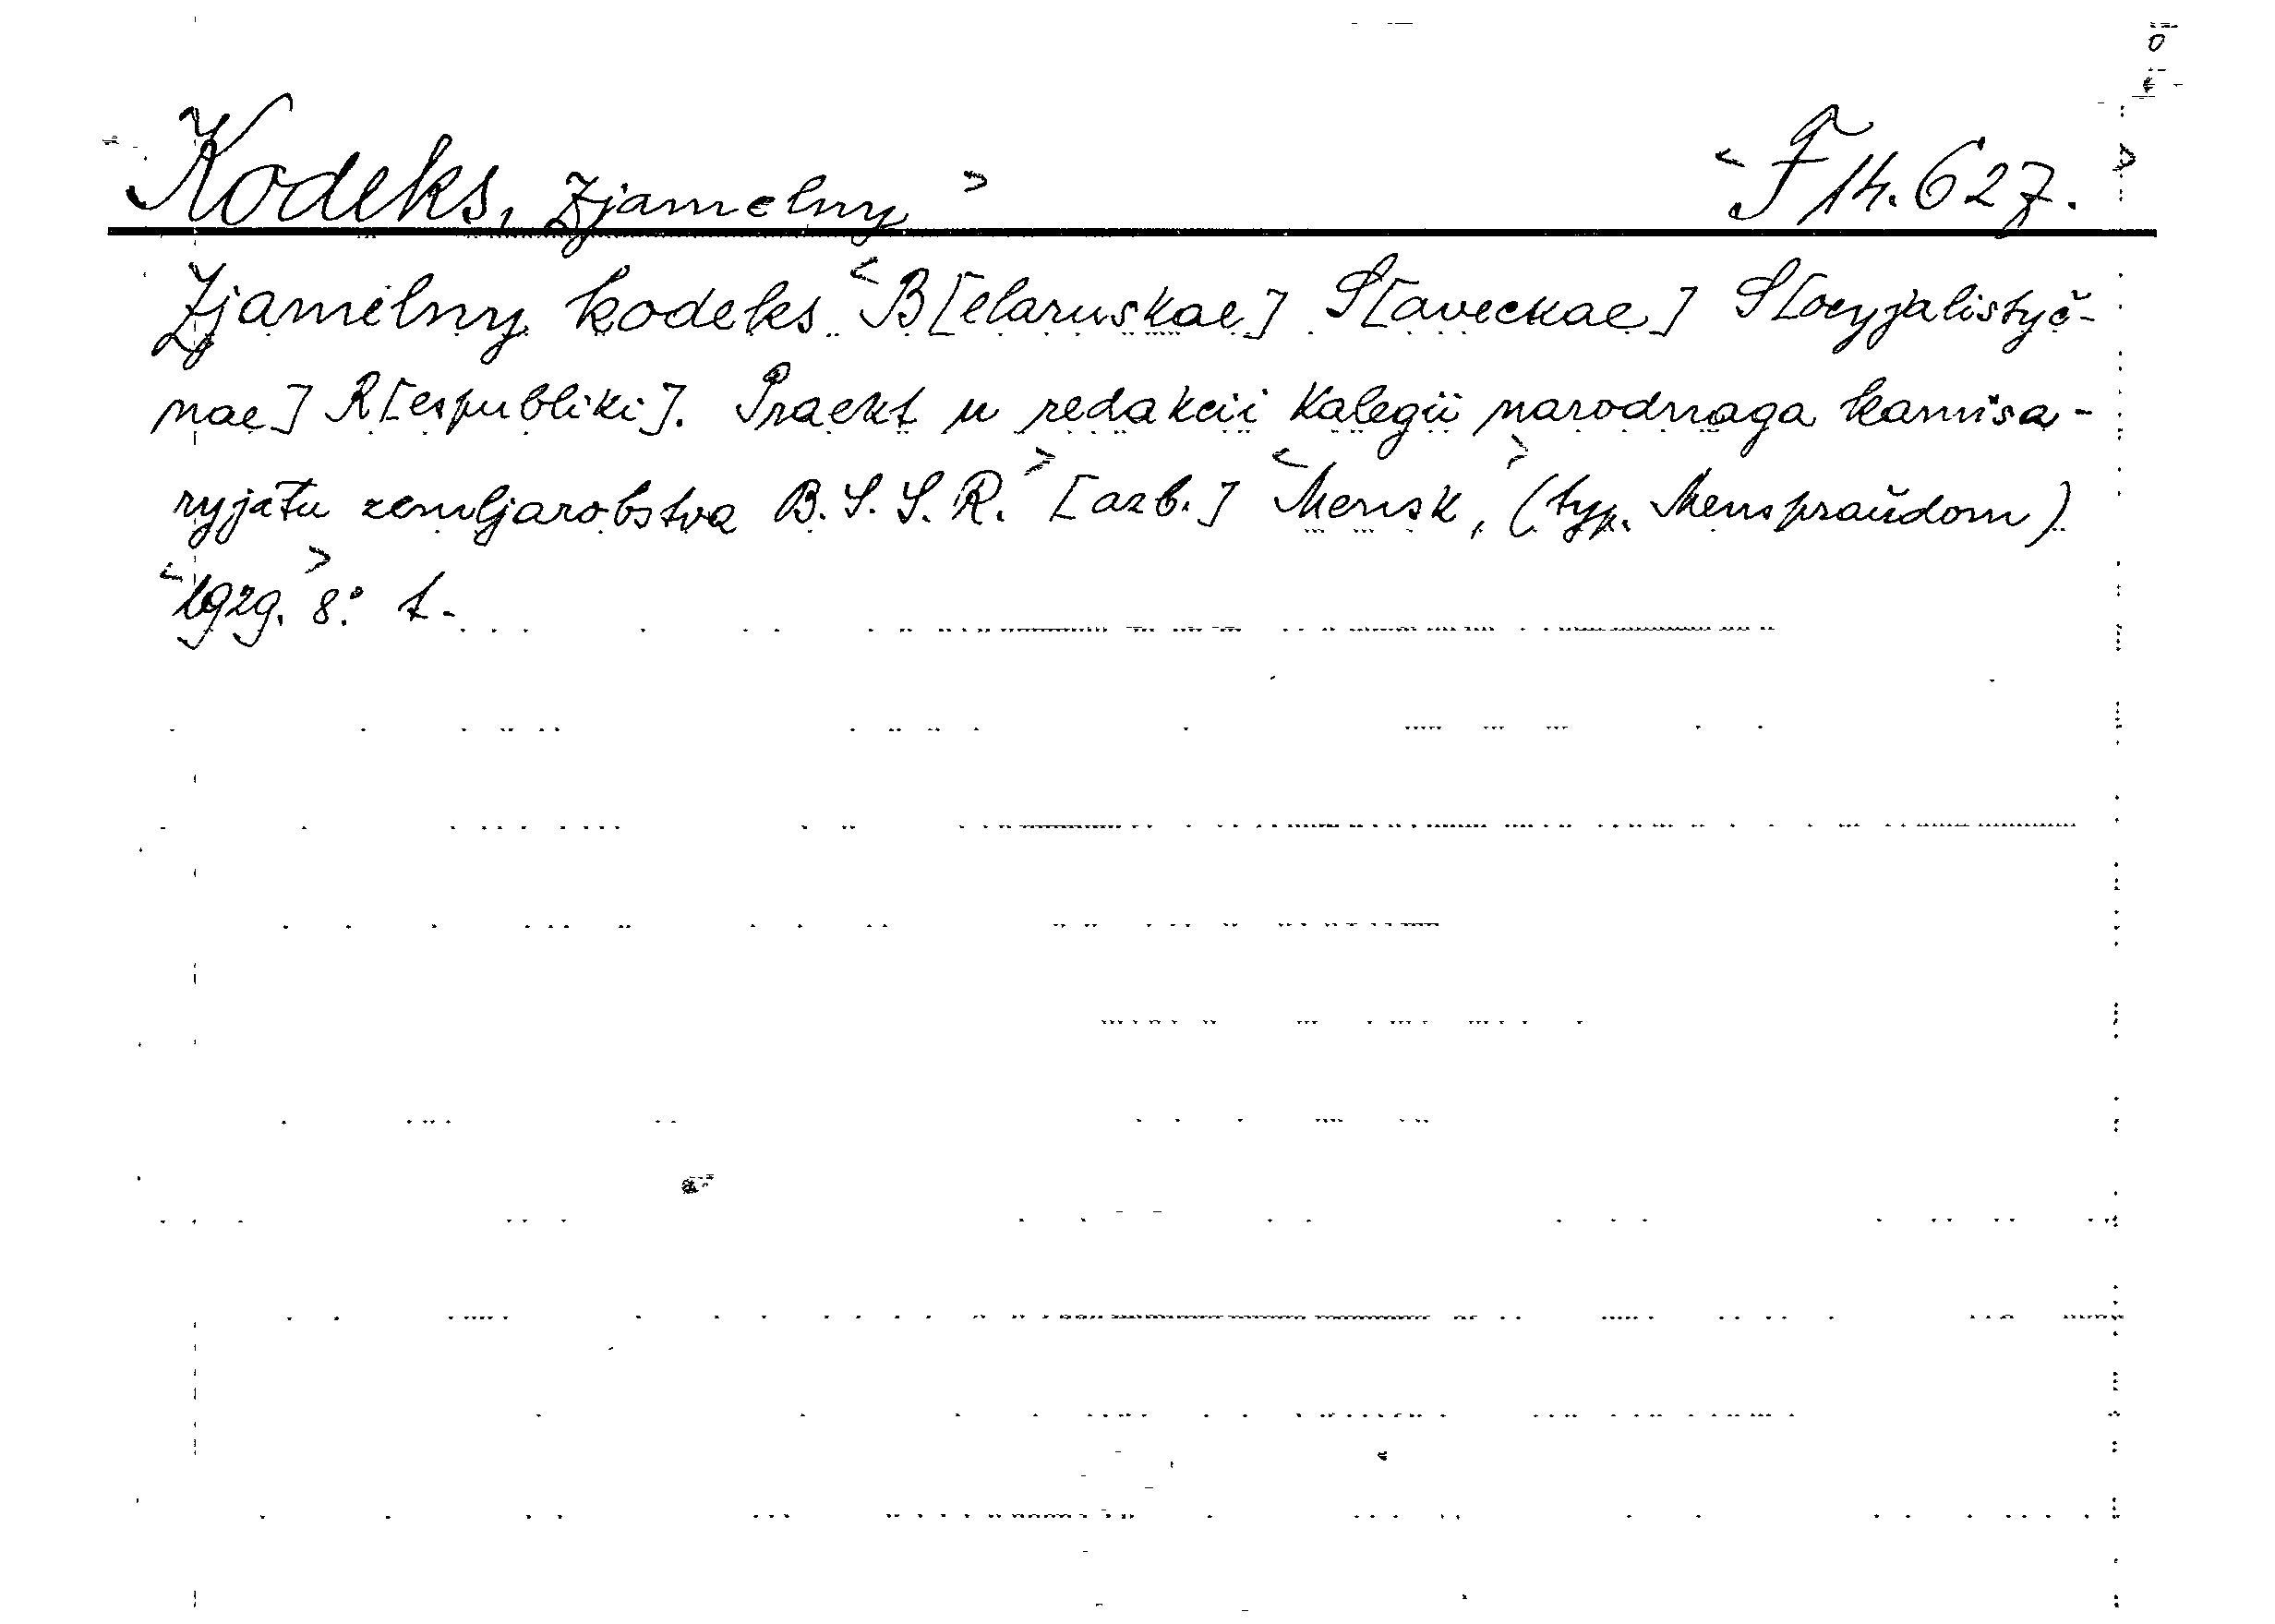 Kodeks, Zjamelny > < F 14.627. >
Zjamelny kodeks < B[elaruskae] S[aveckae] S[ocyjalistyč-
nae] R[espubliki]. Praekt u redakcii Kalegii narodnaga kamisa-
ryjatu zemljarobstva B.S.S.R. > [azb.] < Mensk, > (typ. Menspraŭdom)
< 1929. > 8.° t.-